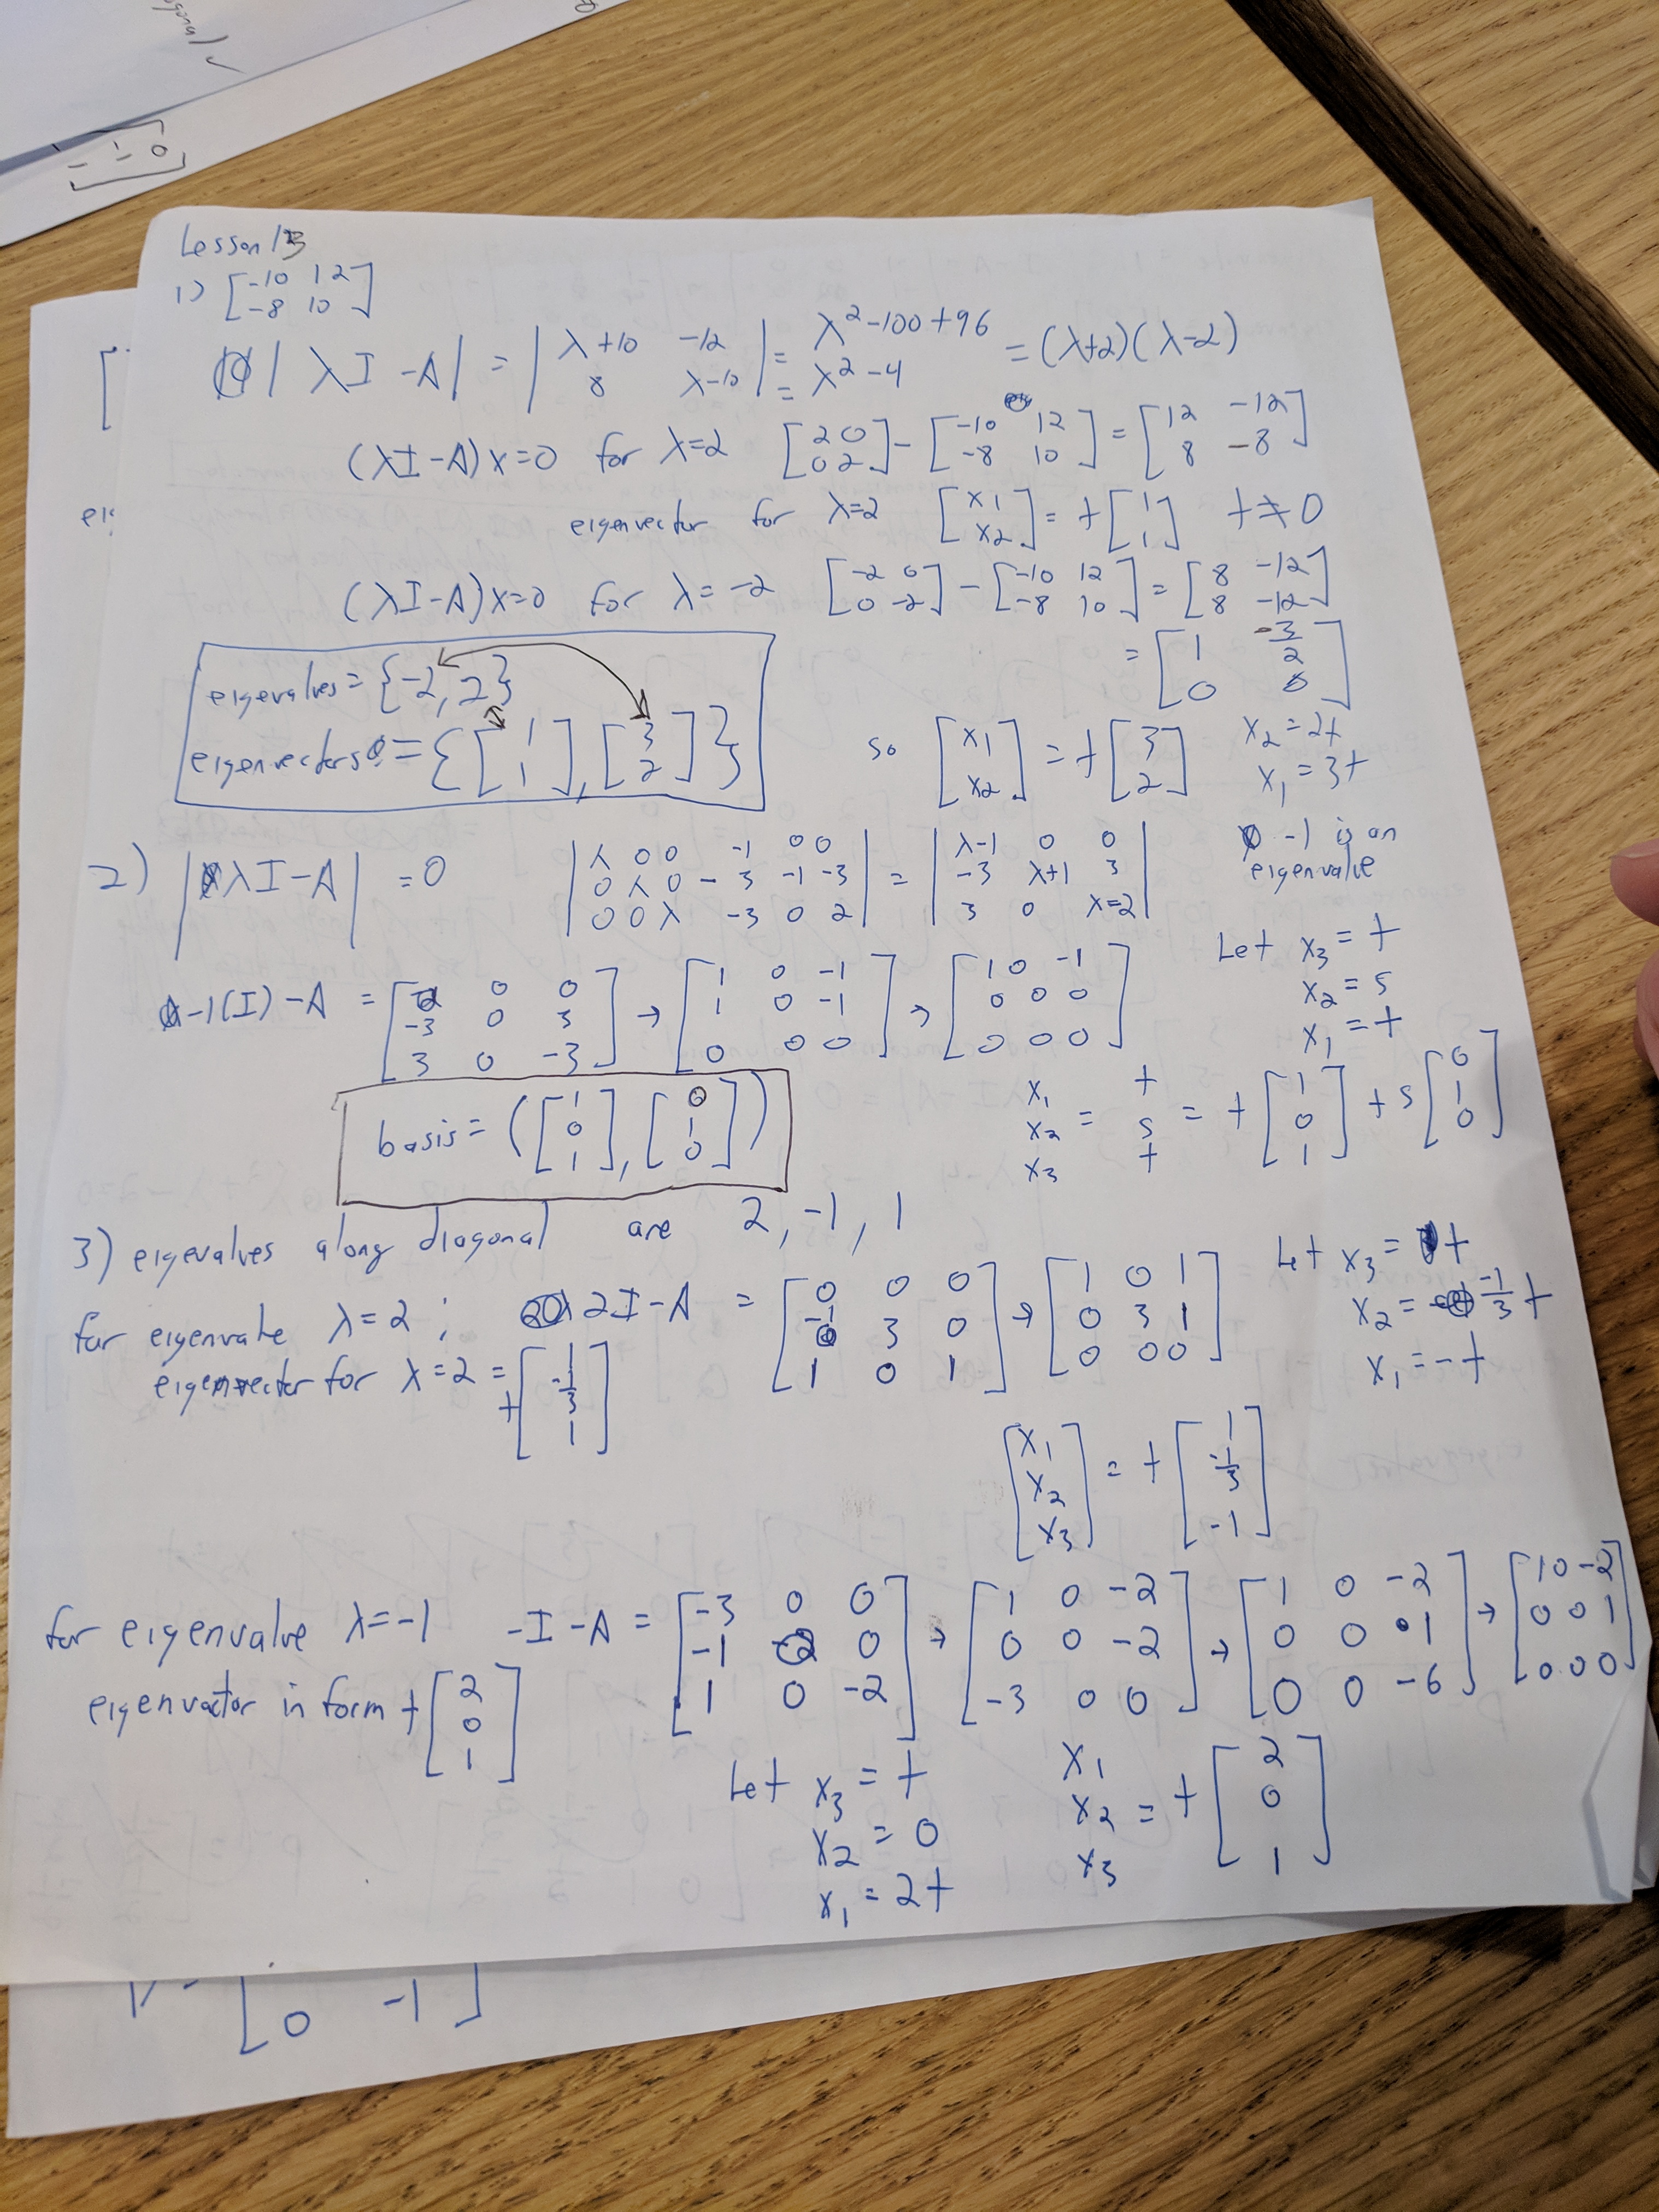 Lesson 13
1) [-10 12
-8 10]
|λI-A| = |λ+10 -12
8 λ-10| = λ²-100+96
= λ²-4
= (λ+2)(λ-2)
(λI-A)x=0 for λ=2 [2 0
0 2] - [-10 12
-8 10] = [12 -12
8 -8]
eigenvector for λ=2 [x1
x2] = t[1
1] t≠0
(λI-A)x=0 for λ=-2 [-2 0
0 -2] - [-10 12
-8 10] = [8 -12
8 -12]
= [1 -3/2
0 0]
eigevalves = {-2, 2}
eigenvectors = {[1
1], [3
2]}
so [x1
x2] = t[3
2]
x2 = 2t
x1 = 3t
2) |λI-A| = 0
|λ 0 0 -1 0 0
0 λ 0 - 3 -1 -3
0 0 λ -3 0 2| = |λ-1 0 0
-3 λ+1 3
3 0 λ-2|
-1 is an
eigenvalve
-1(I)-A = [-2 0 0
-3 0 3
3 0 -3] → [1 0 -1
1 0 -1
0 0 0] → [1 0 -1
0 0 0
0 0 0]
Let x3 = t
x2 = s
x1 = t
x1
x2
x3 = t
s
t = t[1
0
1] + s[0
1
0]
basis = ([1
0
1], [0
1
0])
3) eigevalves along diagonal are 2, -1, 1
for eigenvalve λ=2; 2I-A = [0 0 0
-1 3 0
1 0 1] → [1 0 1
0 3 1
0 0 0]
Let x3 = t
x2 = -1/3 t
x1 = -t
eigenvector for λ=2 = t[1
-1/3
1]
[x1
x2
x3] = t[1
-1/3
-1]
for eigenvalve λ=-1 -I-A = [-3 0 0
-1 0
1 0 -2] → [1 0 -2
0 0 -2
-3 0 0] → [1 0 -2
0 0 1
0 0 -6] → [1 0 -2
0 0 1
0 0 0]
eigenvector in form t[2
0
1]
Let x3 = t
x2 = 0
x1 = 2t
x1
x2
x3 = t[2
0
1]
0 -1]